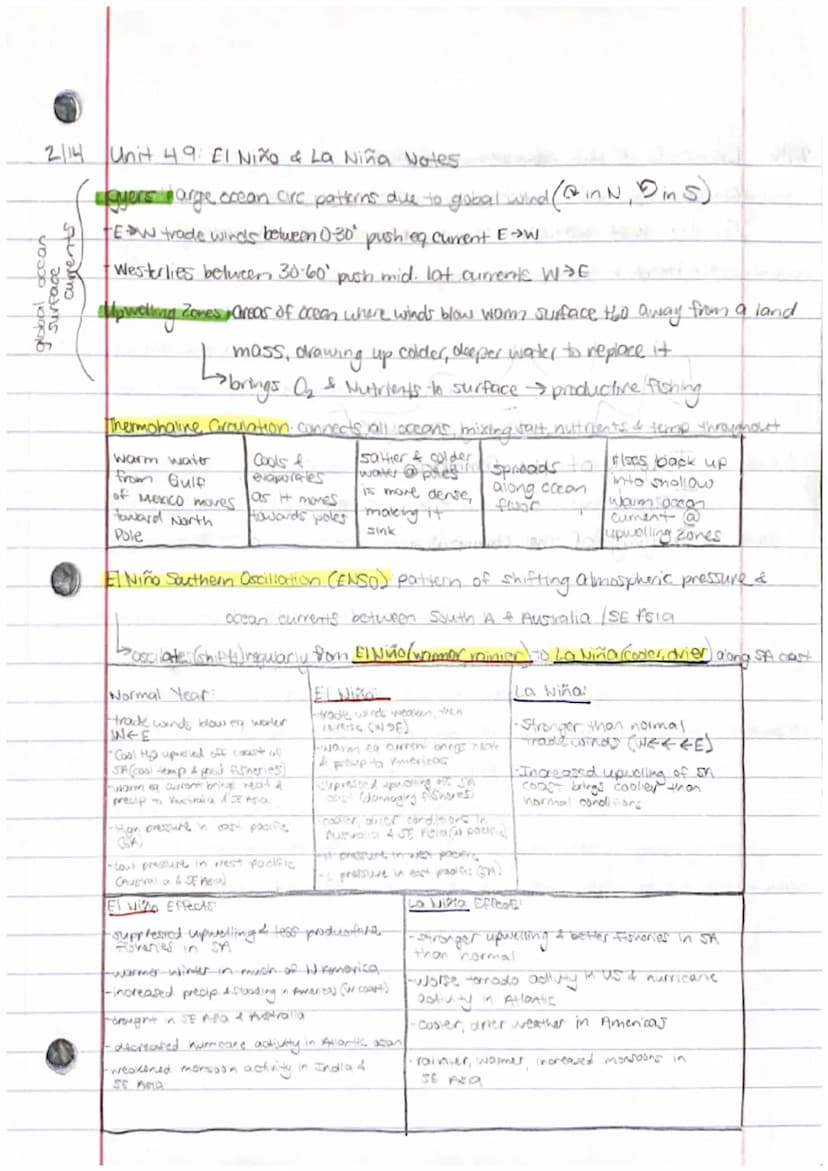 2/14 Unit 4.9: El Niño & La Niña Notes
global ocean surface currents
Gyers: large ocean circ patterns due to global wind (↻ in N, ↺ in S)
-E→W trade winds between 0-30° push eq current E→W
-Westerlies between 30-60° push mid. lat currents W→E
Upwelling Zones: areas of ocean where winds blow warm surface H2O away from a land
mass, drawing up colder, deeper water to replace it
↳brings O2 & Nutrients to surface → productive fishing
Thermohaline Circulation: connects all oceans, mixing salt, nutrients & temp throughout
warm water
from Gulf
of Mexico moves
toward North
Pole
Cools &
evaporates
as it moves
towards poles
saltier & colder
water @ poles
is more dense,
making it
sink
spreads
along ocean
floor
rises back up
into shallow
warm ocean
current @
upwelling zones
El Niño Southern Oscillation (ENSO) pattern of shifting atmospheric pressure &
ocean currents between South A & Australia / SE Asia
↳ (shifts) regularly from El Niño (warmer, rainier) to La Niña (cooler, drier) along SA coast
Normal Year:
-trade winds blow eq water
W←E
-Cool H2O upwelled off coast of
SA (cool temp & good fisheries)
-warm eq current brings heat &
precip to Australia & SE Asia
-High pressure in east pacific
(SA)
-Low pressure in west pacific
(Australia & SE Asia)
El Niño:
-trade winds weaken, then
reverse (W→E)
-warm eq current brings heat
& precip to Americas
-suppressed upwelling off SA
coast (damaging fisheries)
-cooler, drier conditions in
Australia & SE Asia (W pacific)
-H pressure in west pacific
-L pressure in east pacific (SA)
La Niña:
-Stronger than normal
trade winds (W←←←E)
-Increased upwelling of SA
coast brings cooler than
normal conditions
El Niño Effects:
-suppressed upwelling & less productive
fisheries in SA
-warmer winter in much of N America
-increased precip & flooding in Americas (W coast)
-drought in SE Asia & Australia
-decreased hurricane activity in Atlantic ocean
-weakened monsoon activity in India &
SE Asia
La Niña Effects:
-stronger upwelling & better fisheries in SA
than normal
-worse tornado activity in US & hurricane
activity in Atlantic
-cooler, drier weather in Americas
-rainier, warmer, increased monsoons in
SE Asia